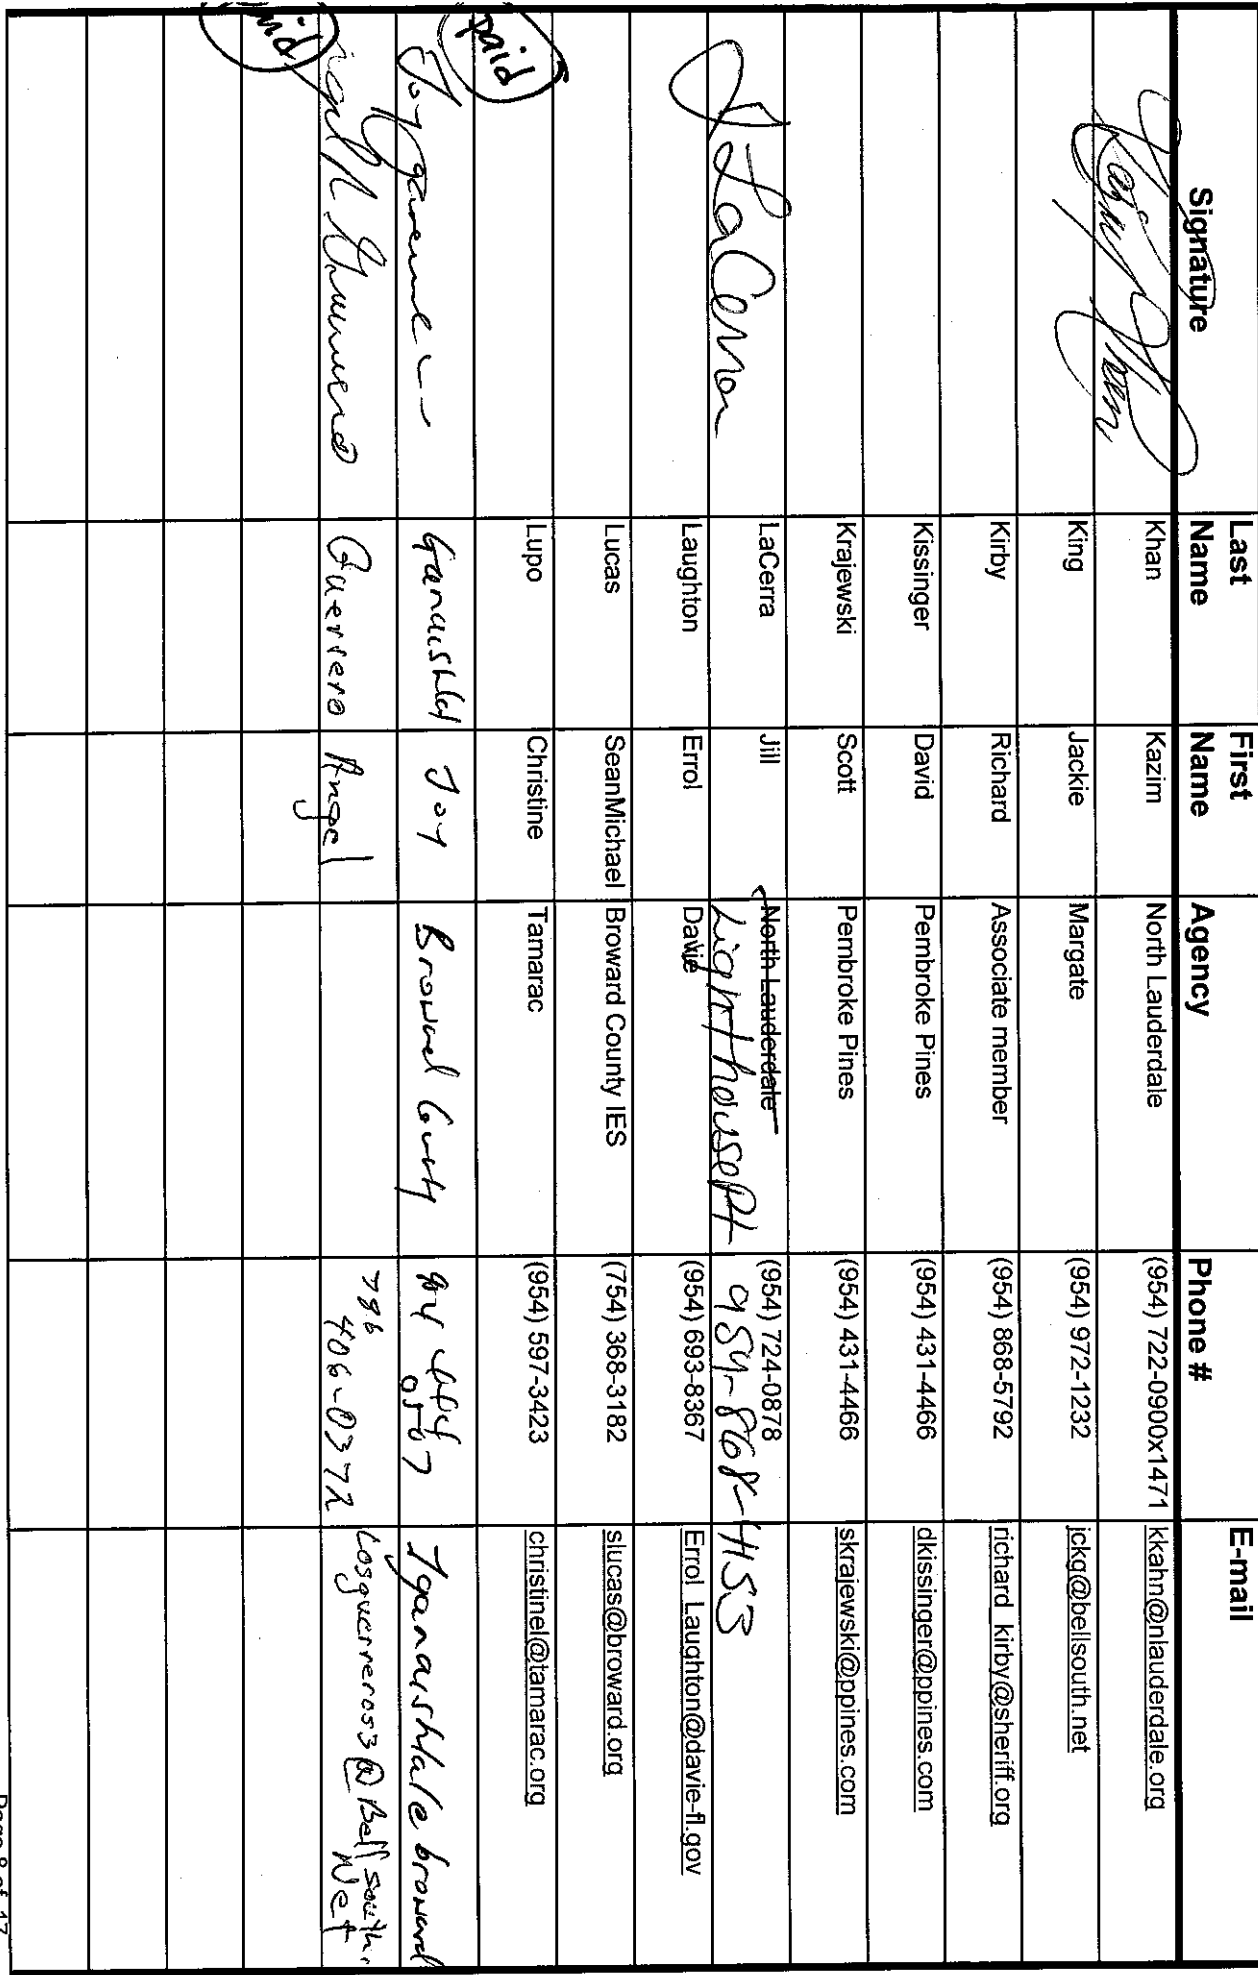 Signature Last Name First Name Agency Phone # E-mail
Khan Kazim North Lauderdale (954) 722-0900x1471 kkahn@nlauderdale.org
King Jackie Margate (954) 972-1232 jckg@bellsouth.net
Kirby Richard Associate member (954) 868-5792 richard_kirby@sheriff.org
Kissinger David Pembroke Pines (954) 431-4466 dkissinger@ppines.com
Krajewski Scott Pembroke Pines (954) 431-4466 skrajewski@ppines.com
J LaCerra LaCerra Jill North Lauderdale (954) 724-0878
Lighthouse Pt 954-868-4153
Laughton Errol Davie (954) 693-8367 Errol_Laughton@davie-fl.gov
Lucas SeanMichael Broward County IES (754) 368-3182 slucas@broward.org
Lupo Christine Tamarac (954) 597-3423 christinel@tamarac.org
paid
Joy Broward
0507
Guerrero Angel 786
406-0372 Losguerreros3@Bellsouth.
Net
Page 8 of 17